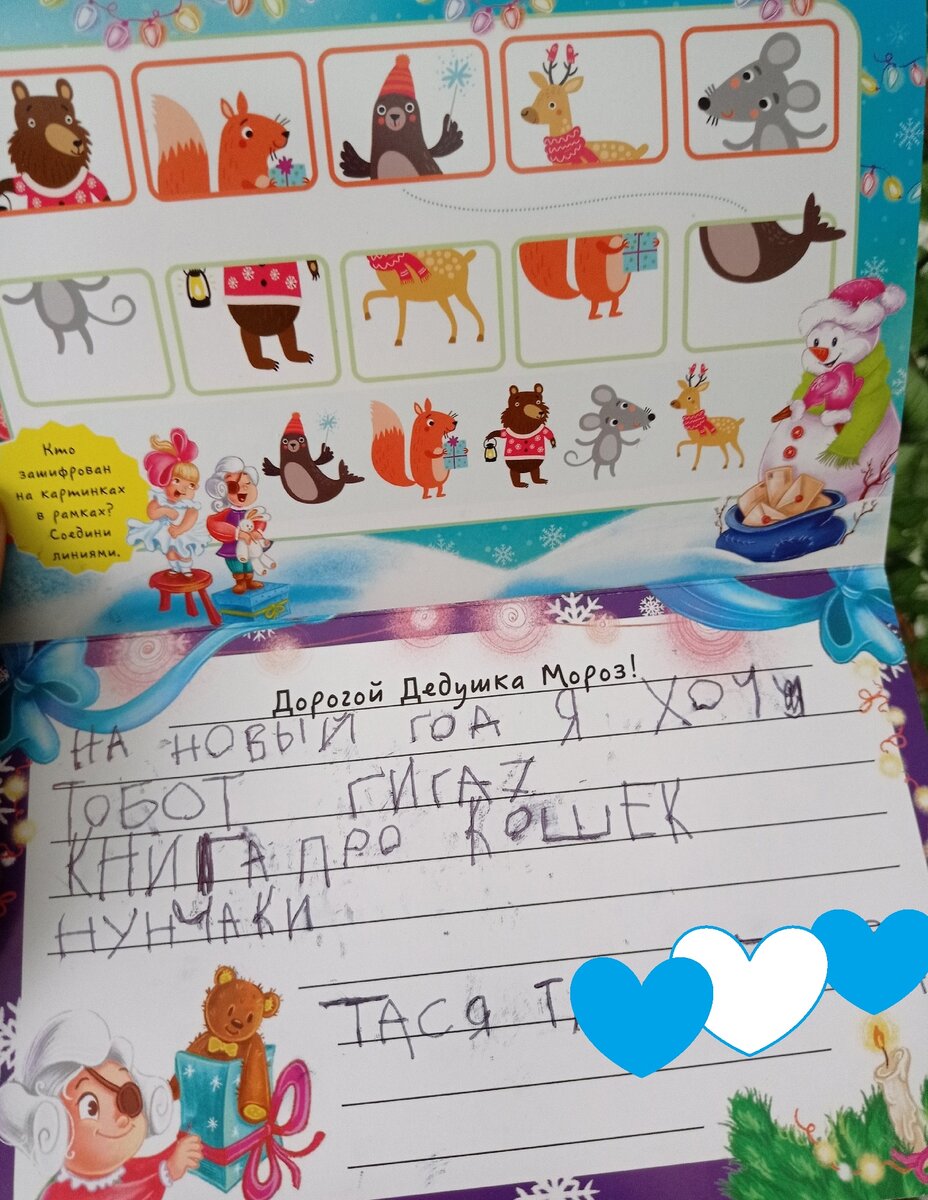 Кто
зашифрован
на картинках
в рамках?
Соедини
линиями.
Дорогой Дедушка Мороз!
НА НОВЫЙ ГОД Я ХОЧУ
ТОБОТ ГИГА7
КНИГА ПРО КОШЕК
НУНЧАКИ
ТАСЯ